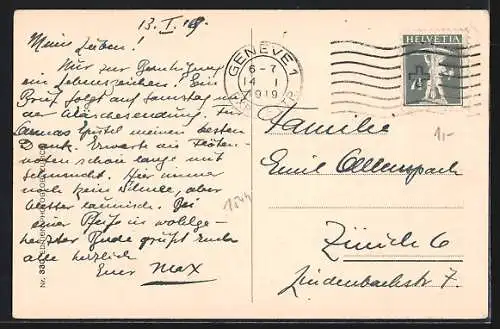 13. I. 19
Meine Lieben!
Nur zur Beruhigung
ein Lebenszeichen! Ein
Brief folgt auf Samstag mit
der Wäschesendung. Für
Epistel meinen besten
Dank. Erwarte die Flöten-
noten schon lange mit
Sehnsucht. Hier immer
noch kein Schnee, aber
Wetter launisch. Bei
einer Pfeife in wohlge-
heizter Bude grüsst euch
alle herzlich
Euer Max
GENÈVE 1
6-7
14 I
1919
HELVETIA
7½
1,-
Familie
Emil Allenspach
Zürich 6
Lindenbachstr. 7.
1644